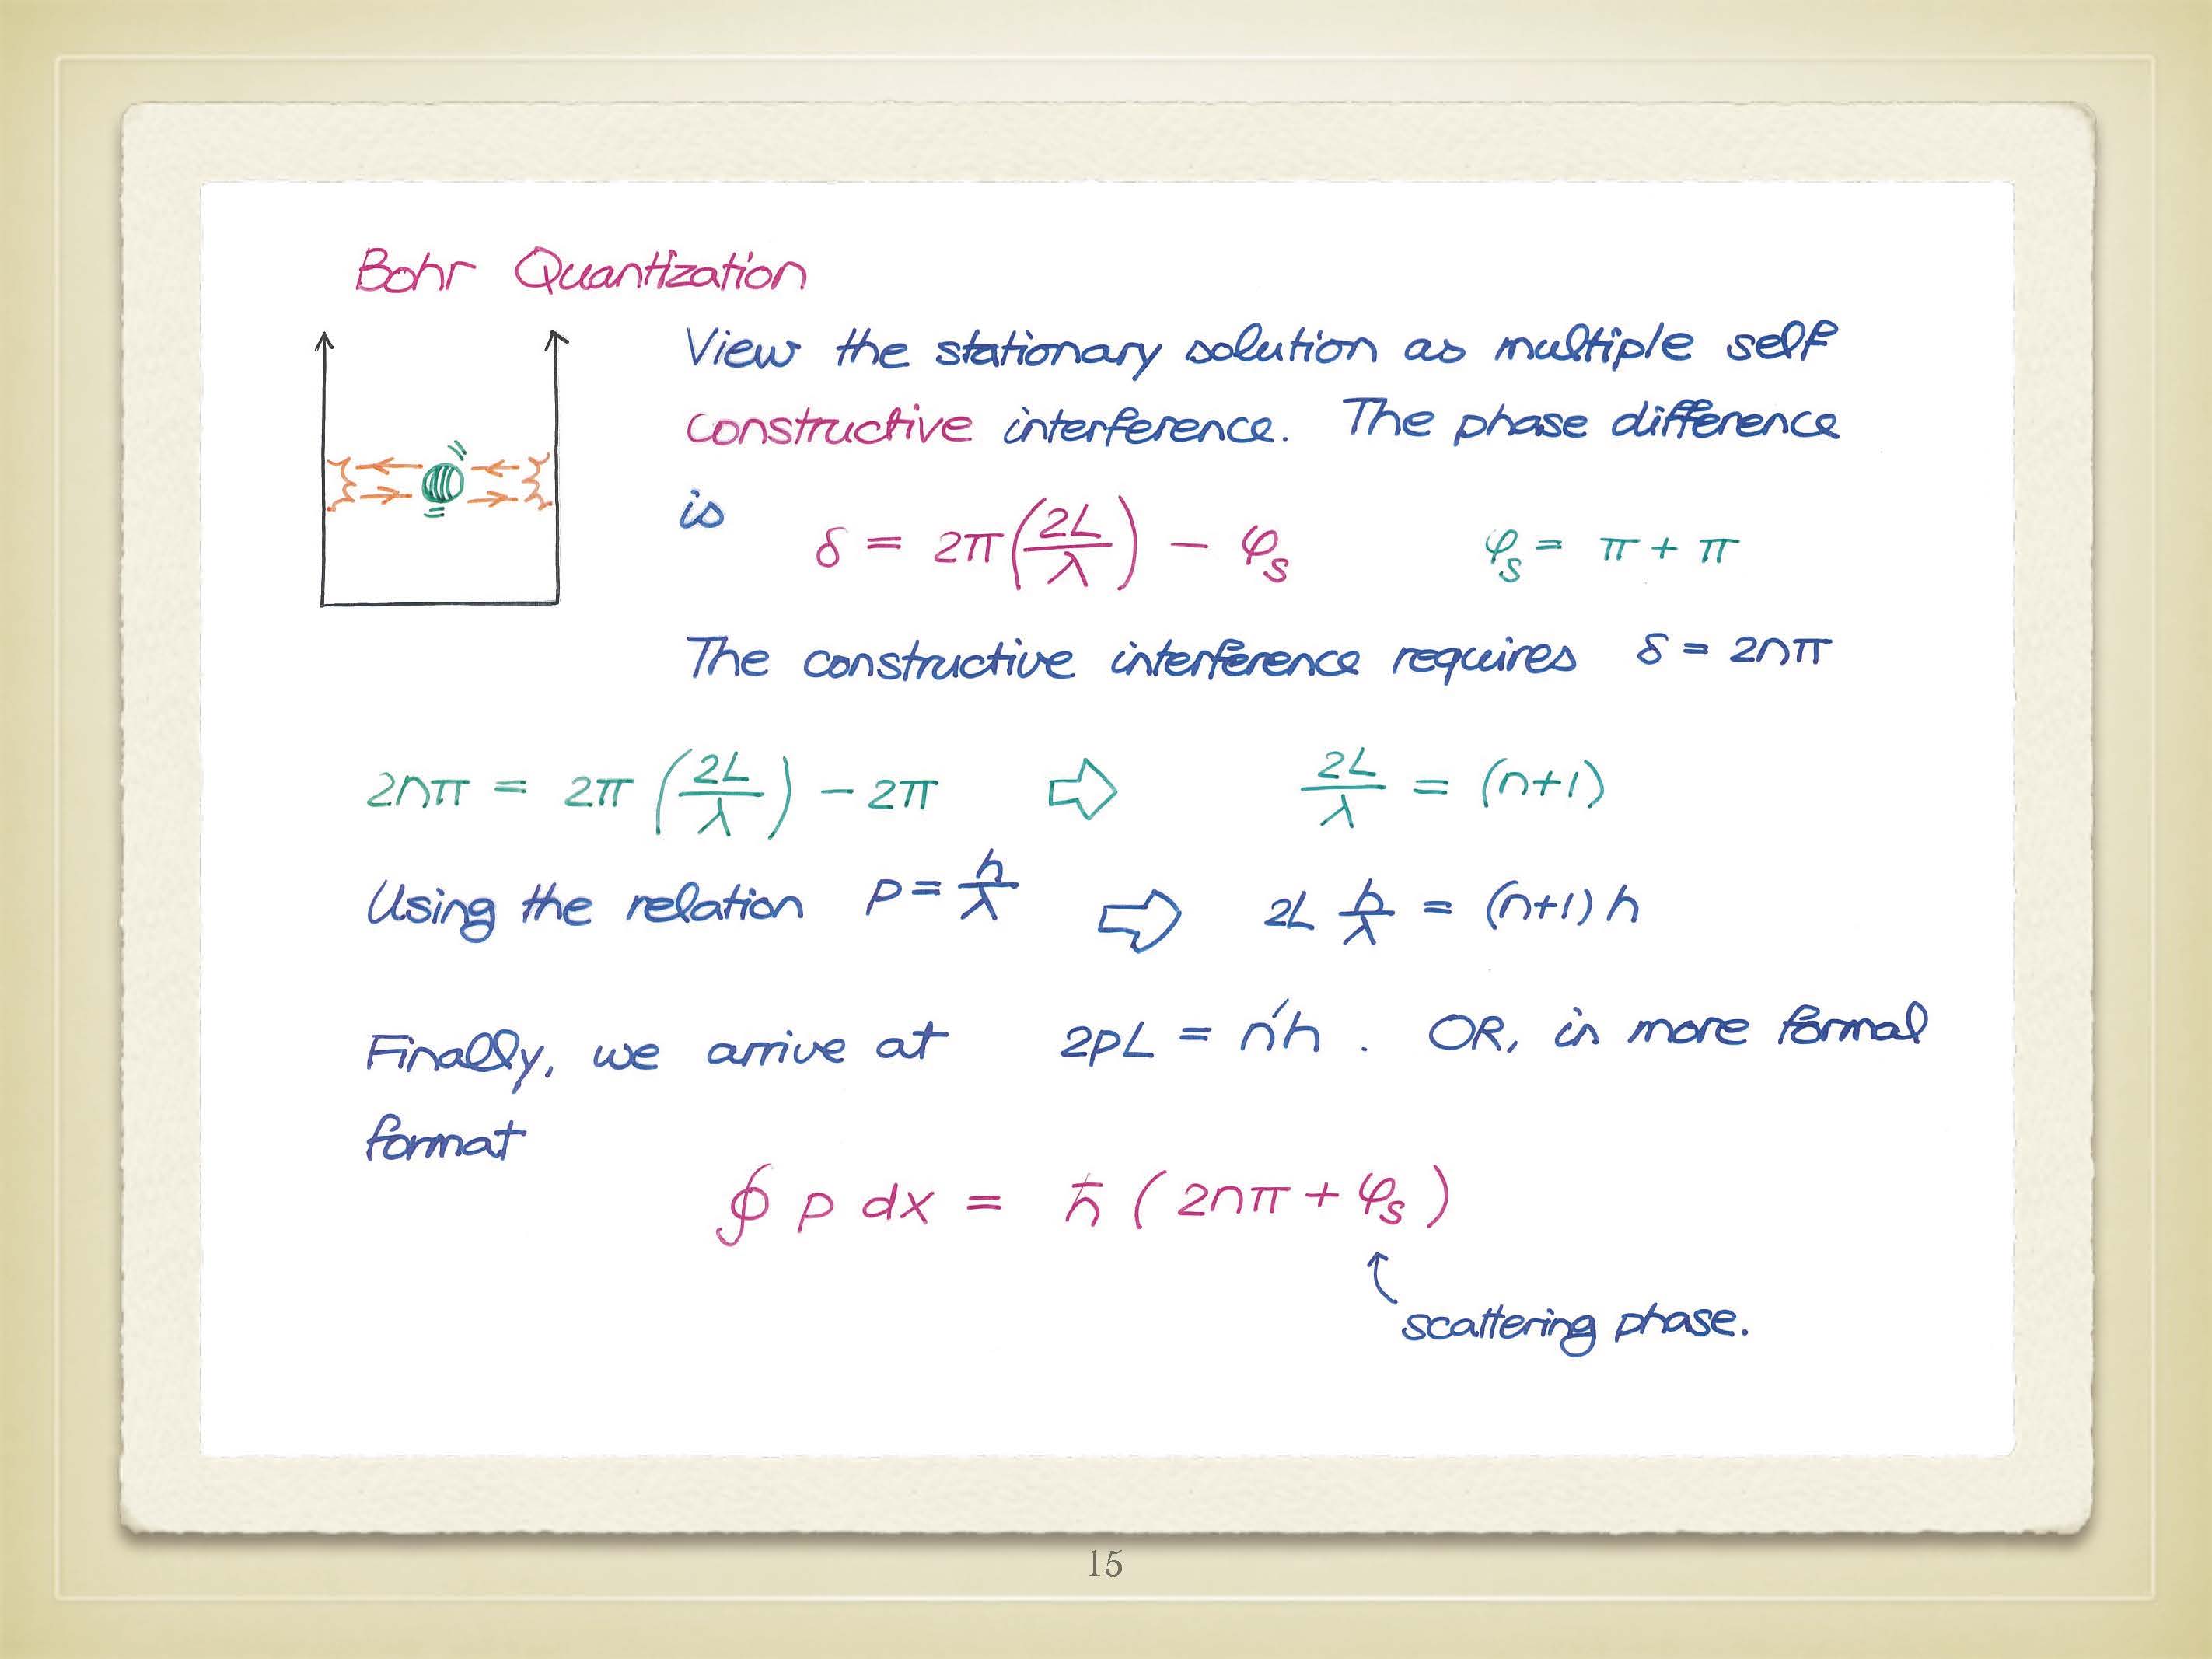 Bohr Quantization
View the stationary solution as multiple self
constructive interference. The phase difference
is δ = 2π(2L/λ) − φₛ φₛ = π + π
The constructive interference requires δ = 2nπ
2nπ = 2π (2L/λ) − 2π ⇨ 2L/λ = (n+1)
Using the relation p = h/λ ⇨ 2L h/λ = (n+1) h
Finally, we arrive at 2pL = n'h . OR, in more formal
format
∮ p dx = ℏ ( 2nπ + φₛ )
scattering phase.
15